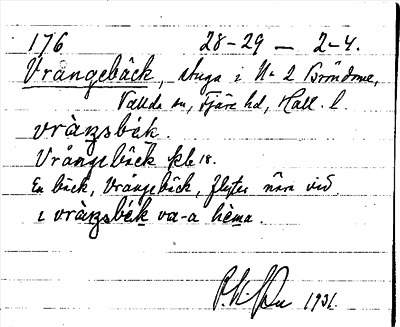 176 28-29 — 2-4.
Vrångebäck, stuga i N:o 2 Bröndome,
Vallda sn, Fjäre hd, Hall. l.
vràŋsbɛ́k.
Vrångebäck fkb 18.
En bäck, Vrångebäck, flyter nära vid.
i vràŋsbɛ́k va-a hèma.
1931.